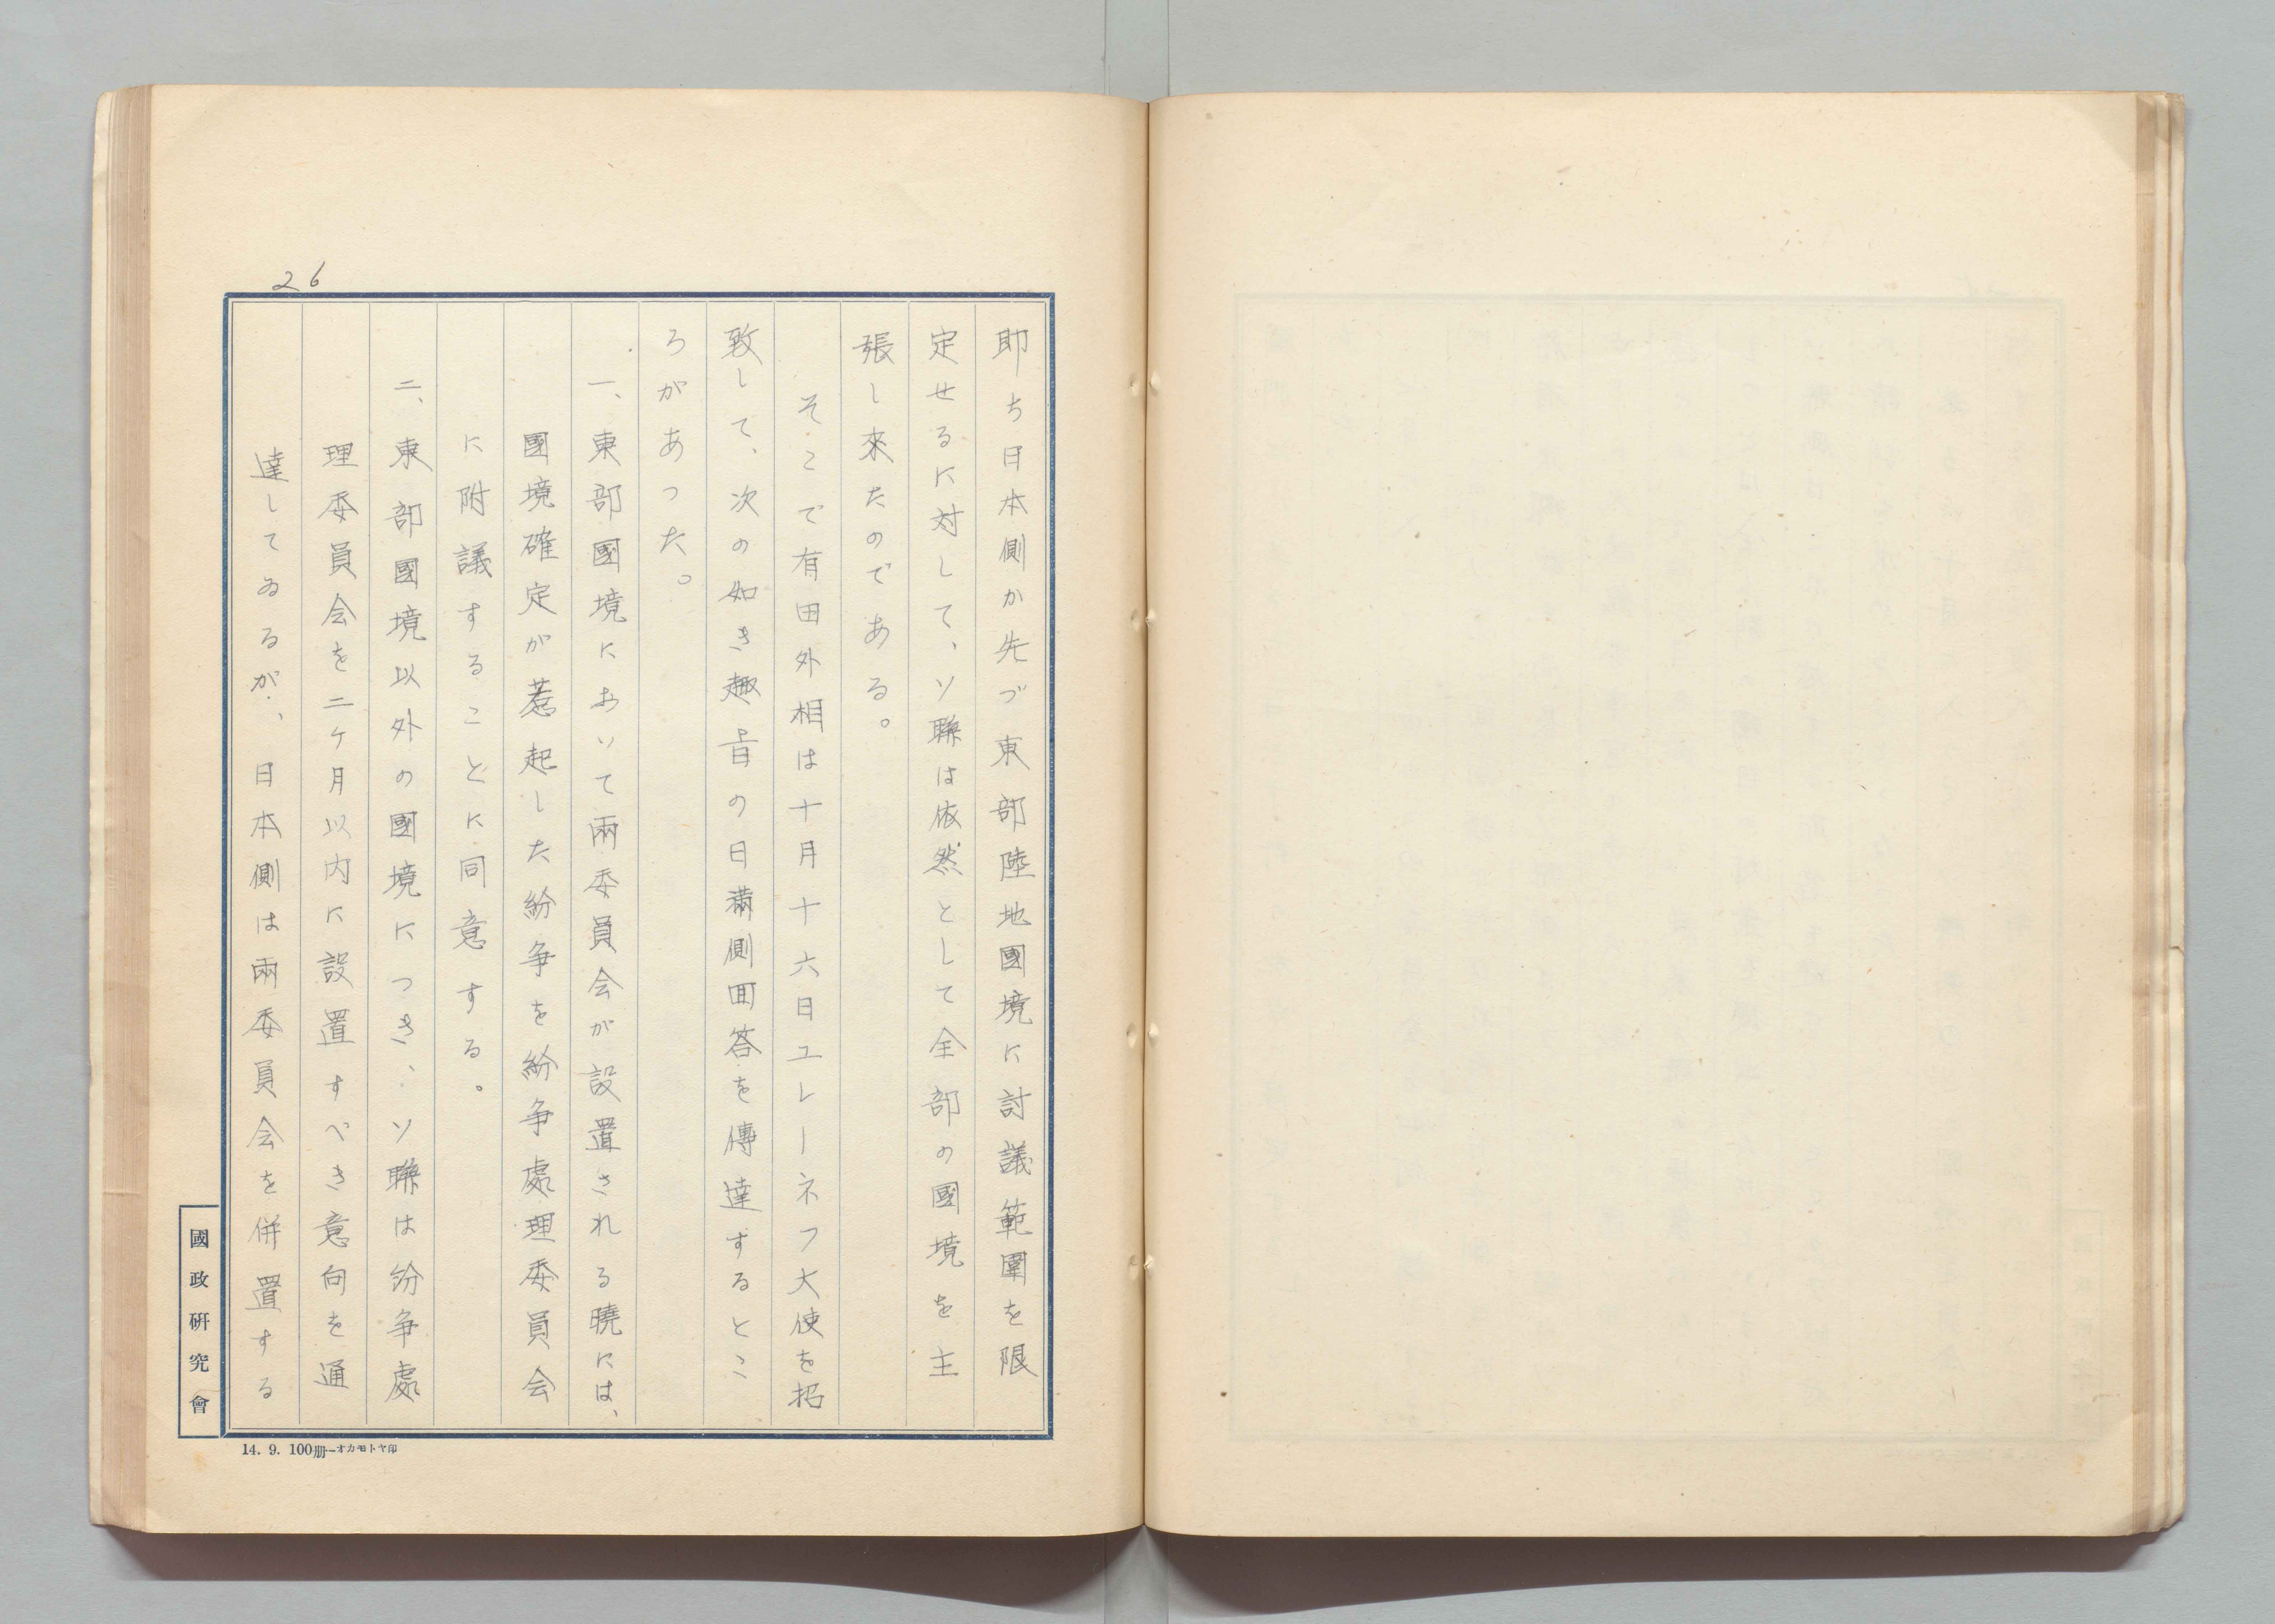 26
即ち日本側が先づ東部陸地國境に討議範圍を限
定せるに対して、ソ聯は依然として全部の國境を主
張し來たのである。
そこで有田外相は十月十六日ユレーネフ大使を招
致して、次の如き趣旨の日満側回答を傳達するとこ
ろがあつた。
一、東部國境において兩委員会が設置される曉には、
國境確定が惹起した紛争を紛争處理委員会
に附議することに同意する。
二、東部國境以外の國境につき、ソ聯は紛争處
理委員会を二ケ月以内に設置すべき意向を通
達してゐるが、日本側は兩委員会を併置する
國政硏究會
14. 9. 100册—オカモトヤ印